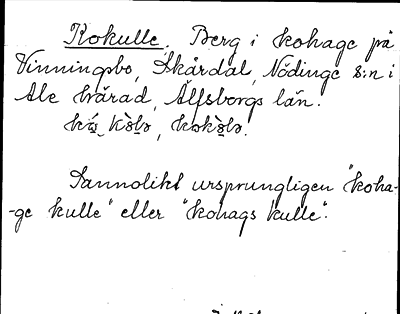 Kokulle. Berg i kohage på
Vinningsbo, Skårdal, Nödinge s:n i
Ale härad, Älfsborgs län.

Sannolikt ursprungligen "koha-
-ge kulle" eller "kohags kulle".